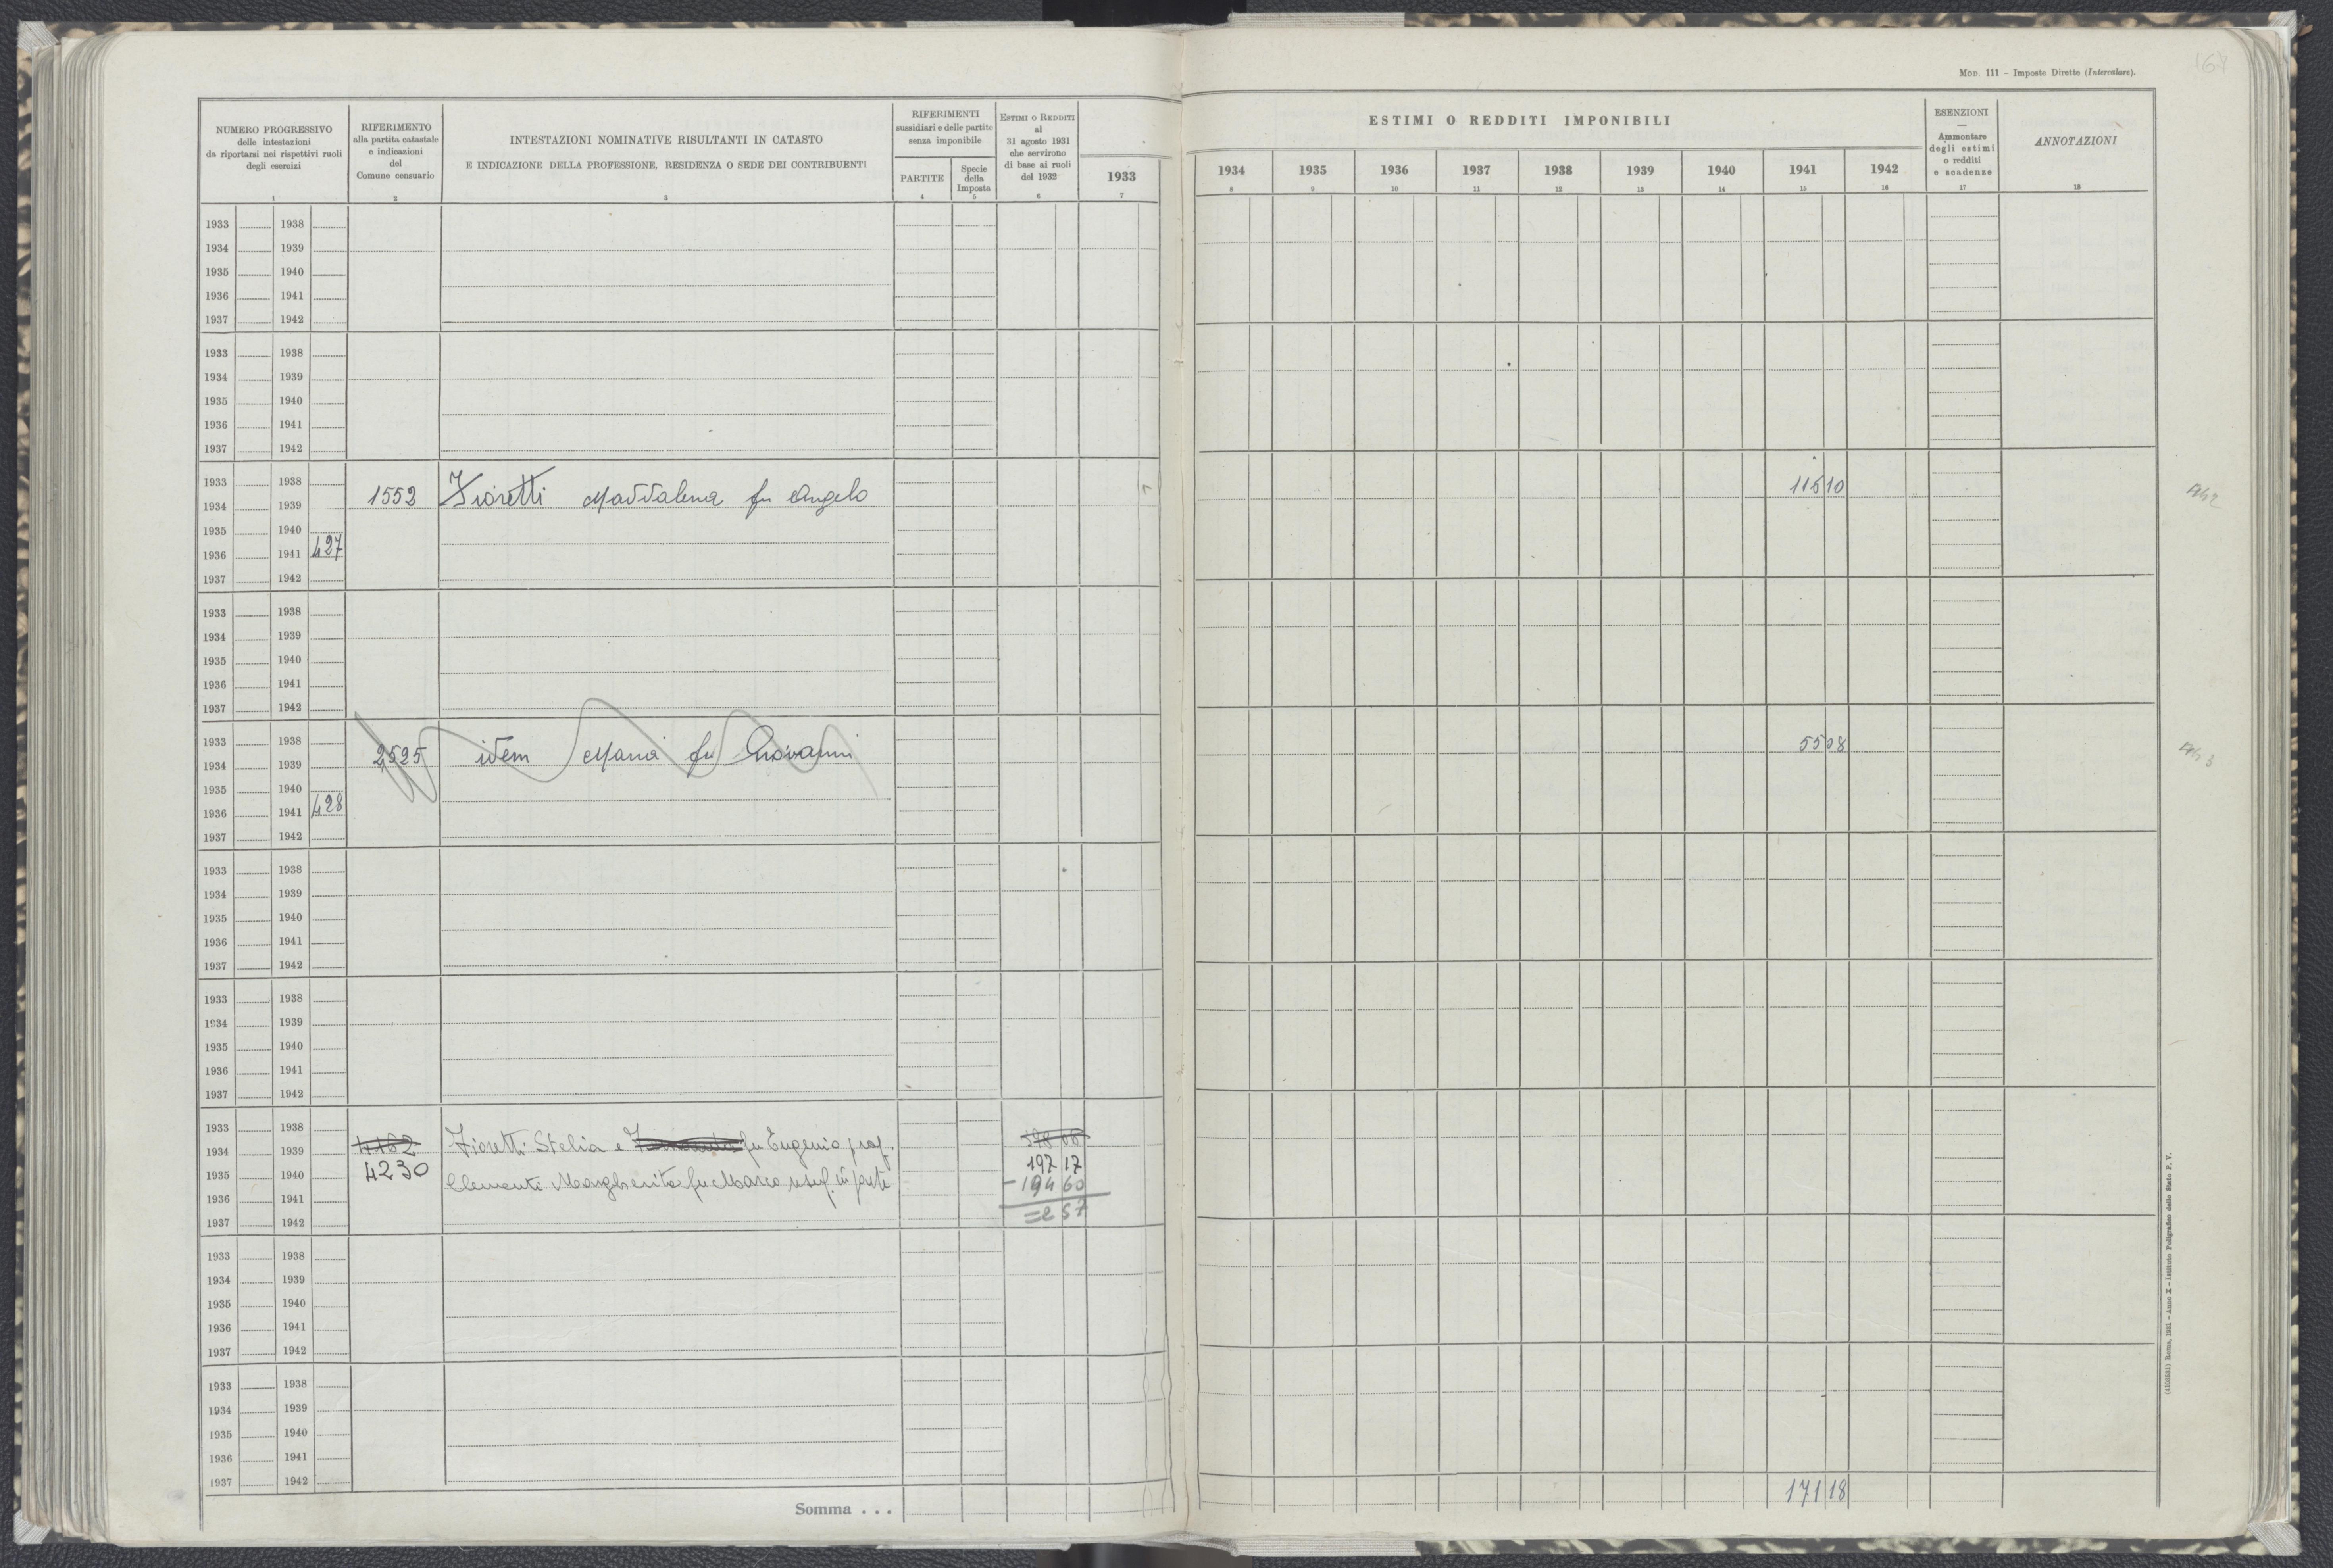 167
MOD. 111 – Imposte Dirette (Intercalare).
NUMERO PROGRESSIVO
delle intestazioni
da riportarsi nei rispettivi ruoli
degli esercizi
1
RIFERIMENTO
alla partita catastale
e indicazioni
del
Comune censuario
2
INTESTAZIONI NOMINATIVE RISULTANTI IN CATASTO
E INDICAZIONE DELLA PROFESSIONE, RESIDENZA O SEDE DEI CONTRIBUENTI
3
RIFERIMENTI
sussidiari e delle partite
senza imponibile
PARTITE
4
Specie
della
Imposta
5
ESTIMI O REDDITI
al
31 agosto 1931
che servirono
di base ai ruoli
del 1932
6
1933
7
ESTIMI O REDDITI IMPONIBILI
1934 1935 1936 1937 1938 1939 1940 1941 1942
8 9 10 11 12 13 14 15 16
ESENZIONI
—
Ammontare
degli estimi
o redditi
e scadenze
17
ANNOTAZIONI
18
1933 1938
1934 1939
1935 1940
1936 1941
1937 1942
1933 1938
1934 1939
1935 1940
1936 1941
1937 1942
1933 1938
1934 1939 1553 Fioretti Maddalena fu Angelo 116 10
1935 1940
1936 1941 427
1937 1942
1933 1938
1934 1939
1935 1940
1936 1941
1937 1942
1933 1938
1934 1939 2525 idem Maria fu Giovanni 55 08
1935 1940
1936 1941 428
1937 1942
1933 1938
1934 1939
1935 1940
1936 1941
1937 1942
1933 1938
1934 1939
1935 1940
1936 1941
1937 1942
1933 1938
1934 1939 4182 Fioretti Stelia e fu Eugenio prop.
1935 1940 4230 Clemente Margherita fu Marco usuf. in parte 197 17
1936 1941 - 194 60
1937 1942 = 2 57
1933 1938
1934 1939
1935 1940
1936 1941
1937 1942
1933 1938
1934 1939
1935 1940
1936 1941
1937 1942
Somma . . . 171 18
(4103531) Roma, 1931 – Anno X – Istituto Poligrafico dello Stato P. V.